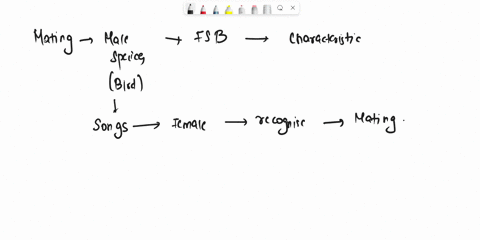 Mating → Male → FSB → Characteristic
Species
(Bird)
↓
Songs → Female → recognise → Mating.